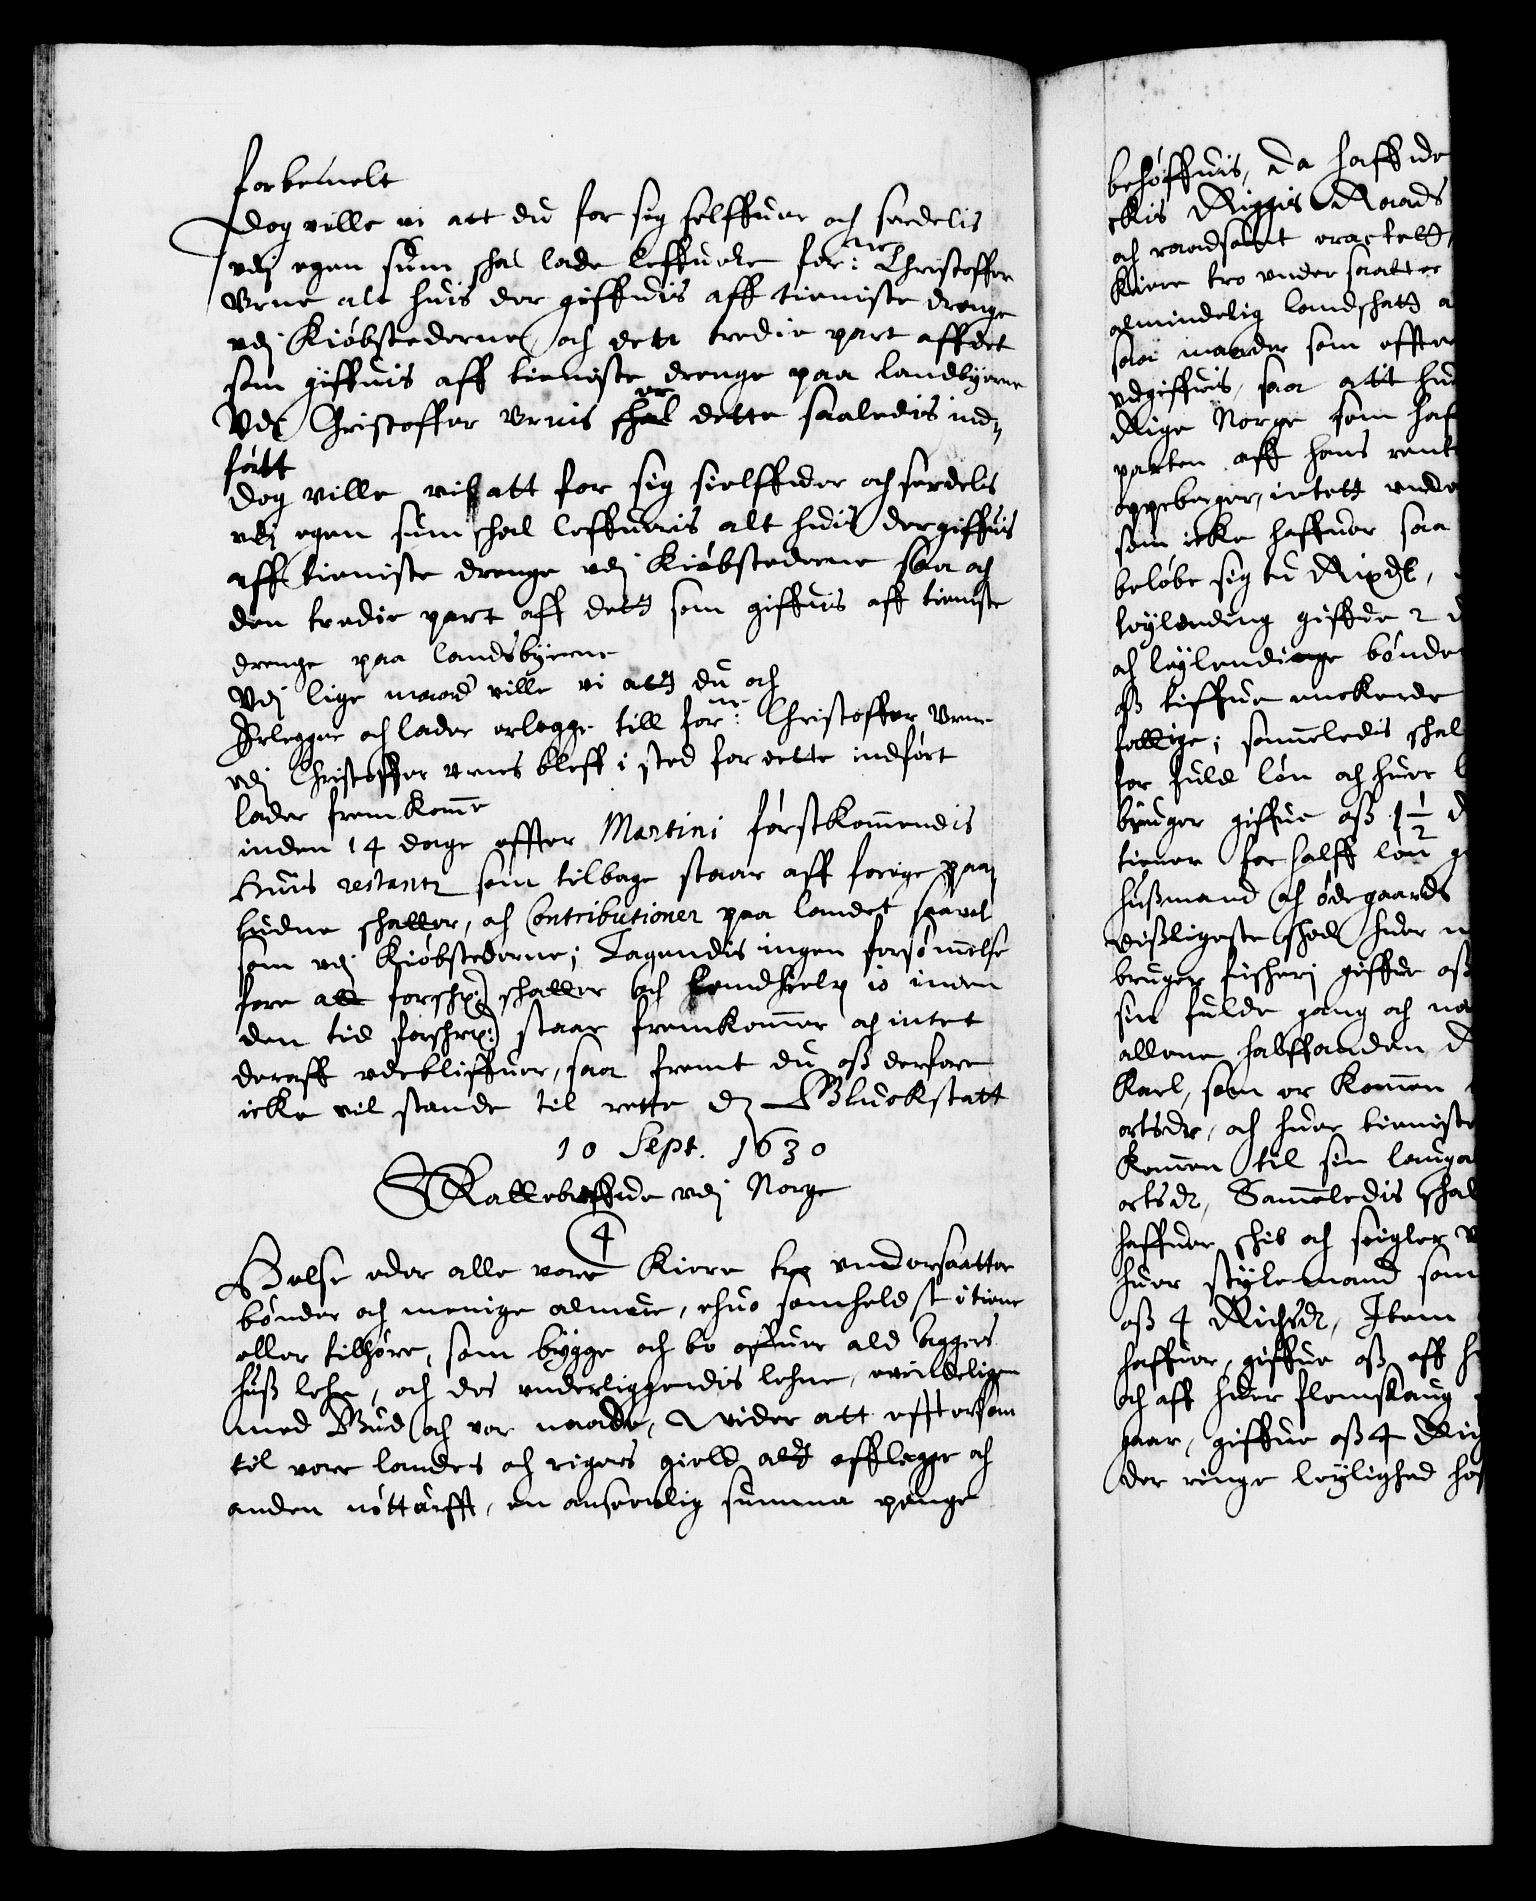 forbemelt
Dog ville vi att du for sig selffuer och serdelis
vdj egen sum skal lade leffuere for:ne Christoffer
Vrne alt huis der giffuis aff tieniste drenge
vdj Kiøbstederne och dett tredie part aff det
som giffuis aff tieniste drenge paa landbyerne
Vdj Christoffer Vrnis er dette saaledis ind,,
ført
Dog ville vi att for sig sielffuer och serdelis
vdj egen sum skal leffueris alt huis der giffuis
aff tieniste drenge vdj Kiøbstederne saa och
den tredie part aff dett som giffuis aff tieniste
drenge paa landsbyerne
Vdj lige maade ville vi att du och
Erlegger och lader erlegge till for:ne Christoffer Vrne
vdj Christoffer Vrnes bleff i sted for dette indført
lader fremkomme
inden 14 dage effter Martini førstkommendis
Huis restantz som tilbage staar aff forige paa,,
budne skatter, och Contributioner paa landet saauel
som vdj Kiøbstederne; Tagendis ingen forsømmelse
fore att forschr: skatter och Lendhielp io inden
den tid forschr: staar fremkommer och intet
deraff vdebliffuer, saa fremt du oß derfore
icke vil stande til rette Dat Gluckstatt
10 Sept. 1630
Skattebreffue vdj Norge
4
Helse eder alle vore Kiere tro vndersaatter
bønder och menige almue, ehuo somhelst i tiene
eller tilhøre, som bygge och bo offuer ald Aggers
huß lehn, och des vnderliggendis lehne, euindeligen
med Gud och vor naade, Wider att efftersom
til vore landes och rigers gield att afflegge och
anden nøttørfft, en anseenlig summa penge
behøffuis, da haffue
ckis Riggis Raads
och raadsamt eractett,
Kiere tro vndersaatter
almindelig landskatt a
saa maader som effter
vdgiffuis, saa att hu
Rige Norge som haf
parten aff hans rent
oppeberger, intett vnd
som icke haffuer saa
beløbe sig tu Rixdl,
leylending giffue 2 d
och leylendinge bønder
oß tiffue
fellige; sammeledis skal
for fuld løn och huer
bruger giffue oß 1 1/2 d
tiener for halff løn g
hußmand och ødegaards
vißligeste skal huer m
bruger fiskerj giffue oß
sin fulde gang och na
allene halffanden D
Karl, som er kommen
ortsdr, och huer tieniste
kommen til sin lauga
ortsdr, Sammeledis skal
haffuer skib och seigler
huer styremand som
oß 4 Richsdr, Item
haffuer, giffue oß aff h
och aff huer flomskaug
gaar, giffue oß 4 Ri
der ringe leylighed haf